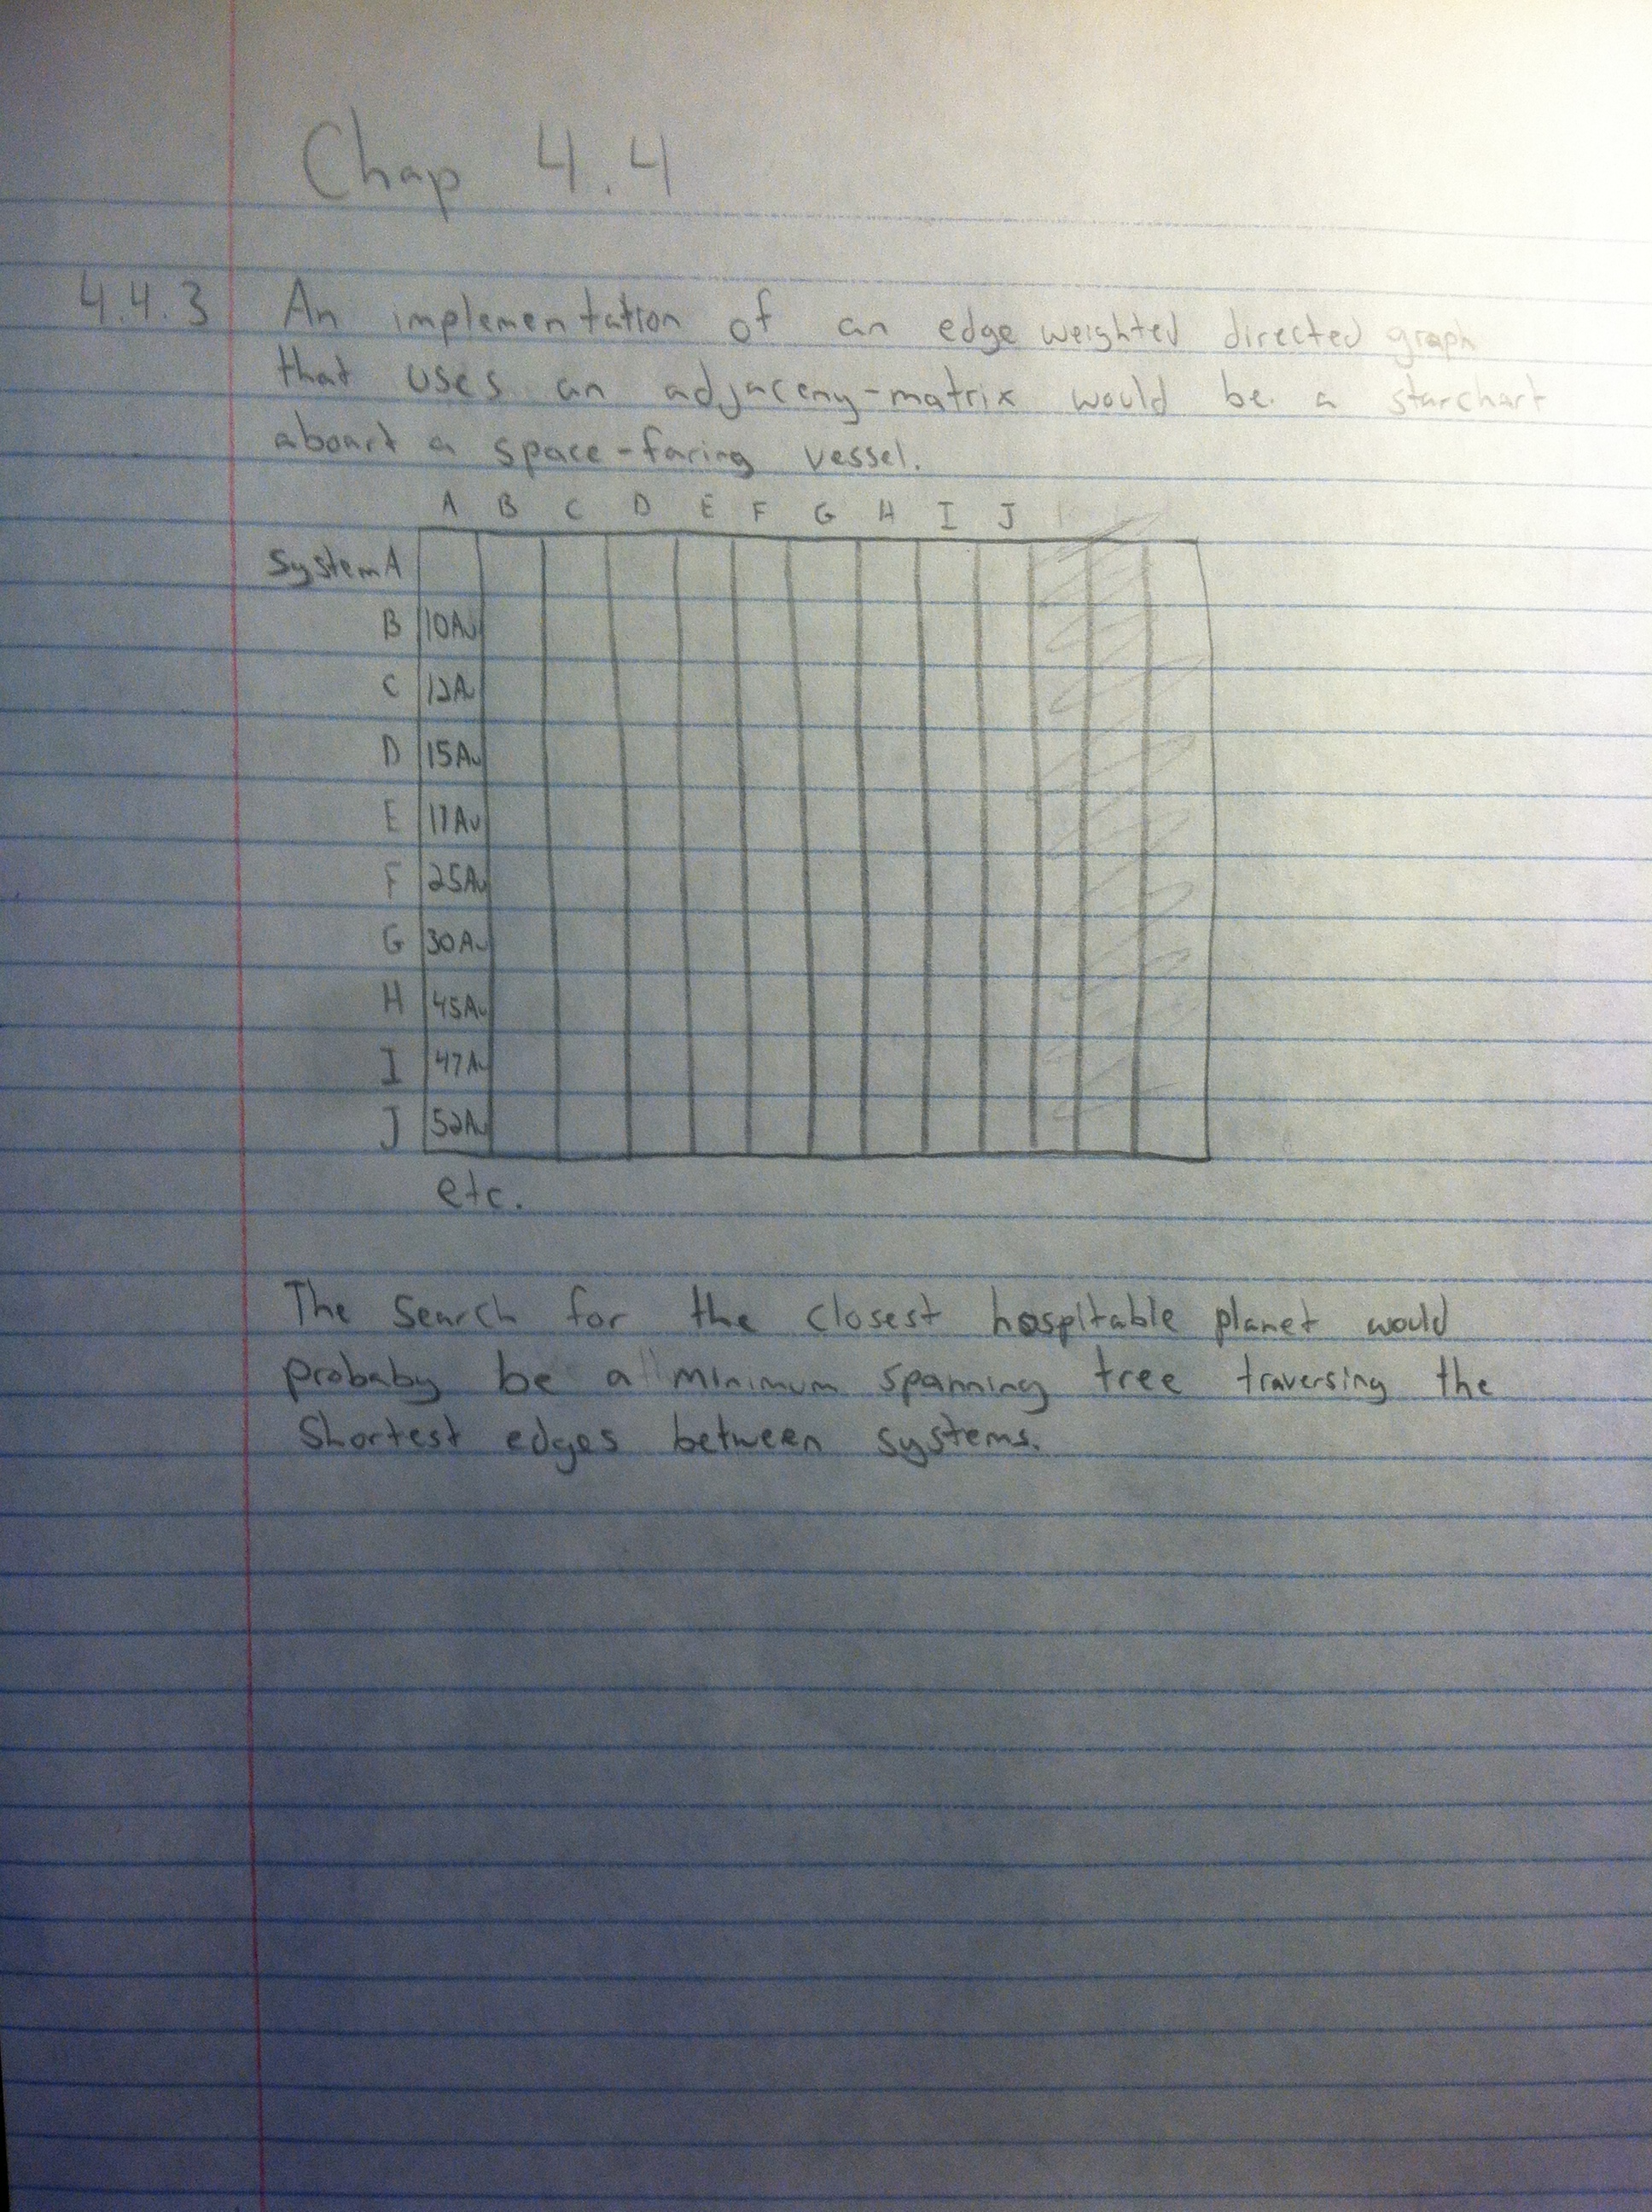 Chap 4.4
4.4.3 An implementation of an edge weighted directed graph
that uses an adjaceny-matrix would be a starchart
aboart a space-faring vessel.
A B C D E F G H I J
System A
B 10Au
C 12Au
D 15Au
E 17Au
F 25Au
G 30Au
H 45Au
I 47Au
J 52Au
etc.
The search for the closest hospitable planet would
probaby be a minimum spanning tree traversing the
shortest edges between systems.